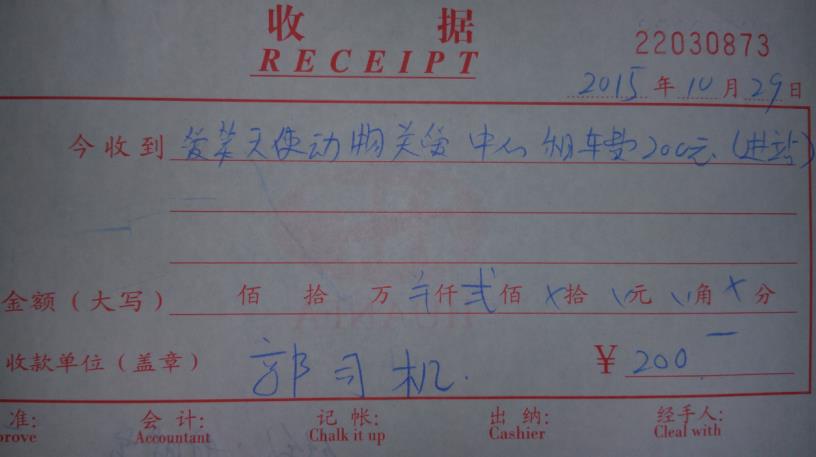 收 据
RECEIPT
22030873
2015 年 10 月 29 日
今收到 爱笨天使动物关爱中心 租车费200元 (进站)
金额(大写) 佰 拾 万 仟 贰 佰 拾 元 角 分
收款单位(盖章) 郭司机. ¥ 200
准: 会 计: 记 帐: 出 纳: 经手人:
prove Accountant Chalk it up Cashier Cleal with